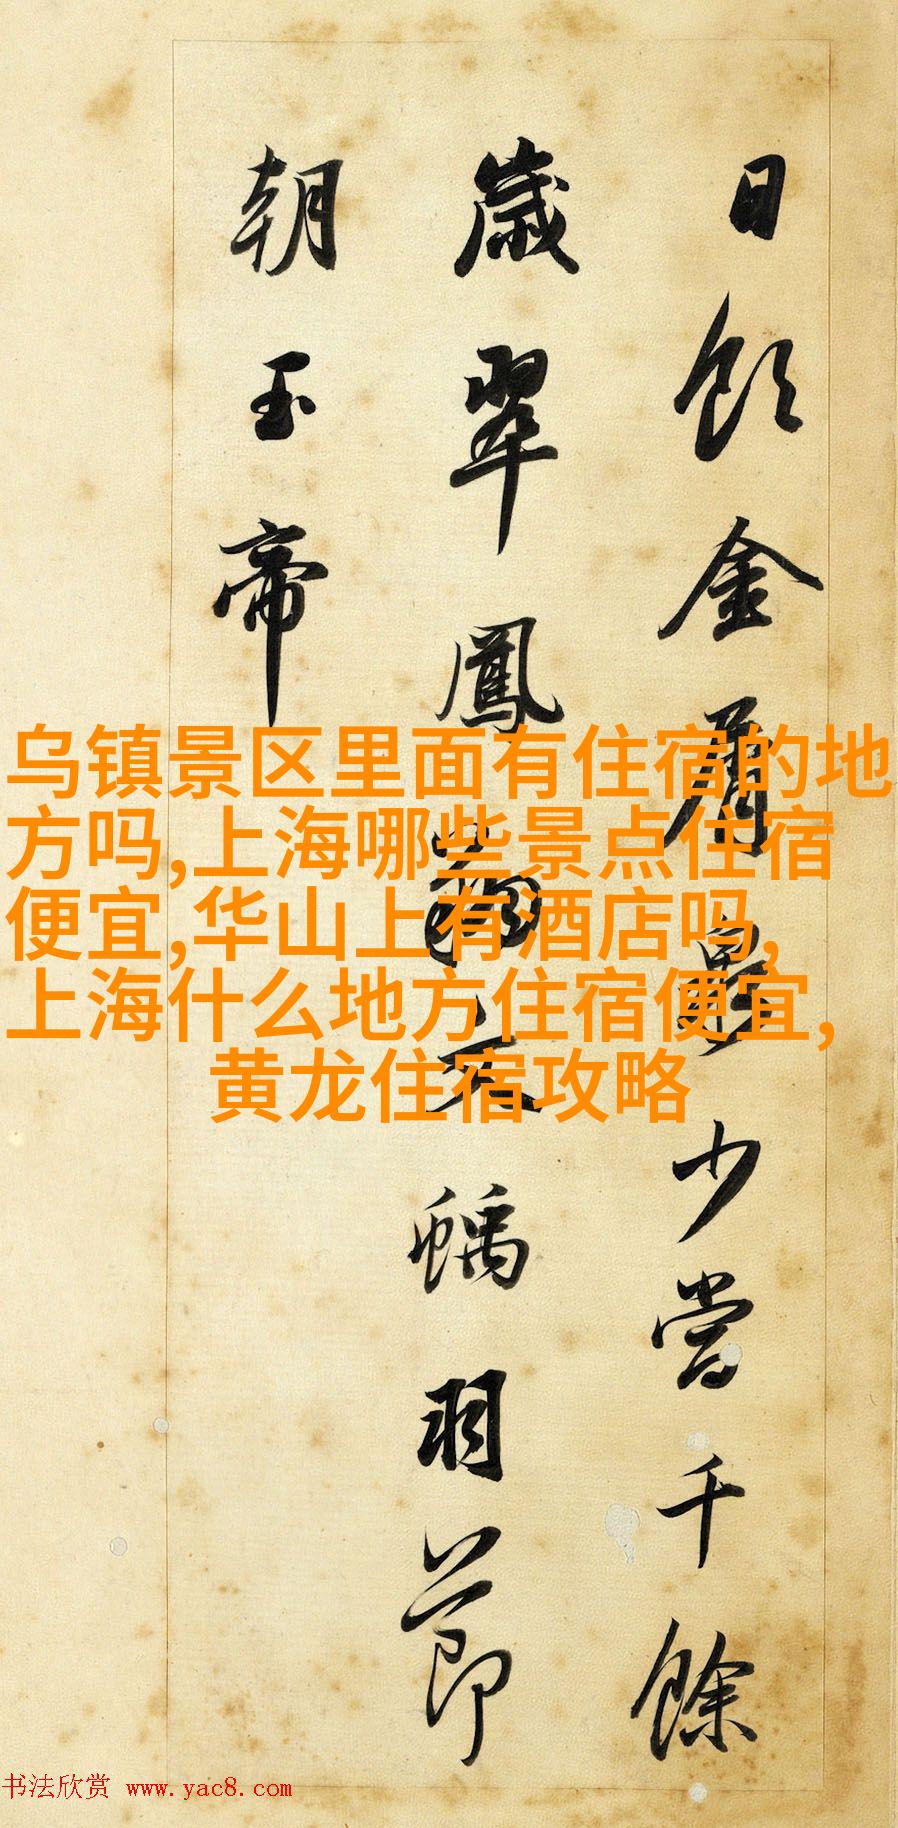 日飲金屑少當千餘
歲翠鳳文螭羽節
朝玉帝
乌镇景区里面有住宿的地
方吗,上海哪些景点住宿
便宜,华山上有酒店吗,
上海什么地方住宿便宜,
黄龙住宿攻略
书法欣赏 www.yac8.com